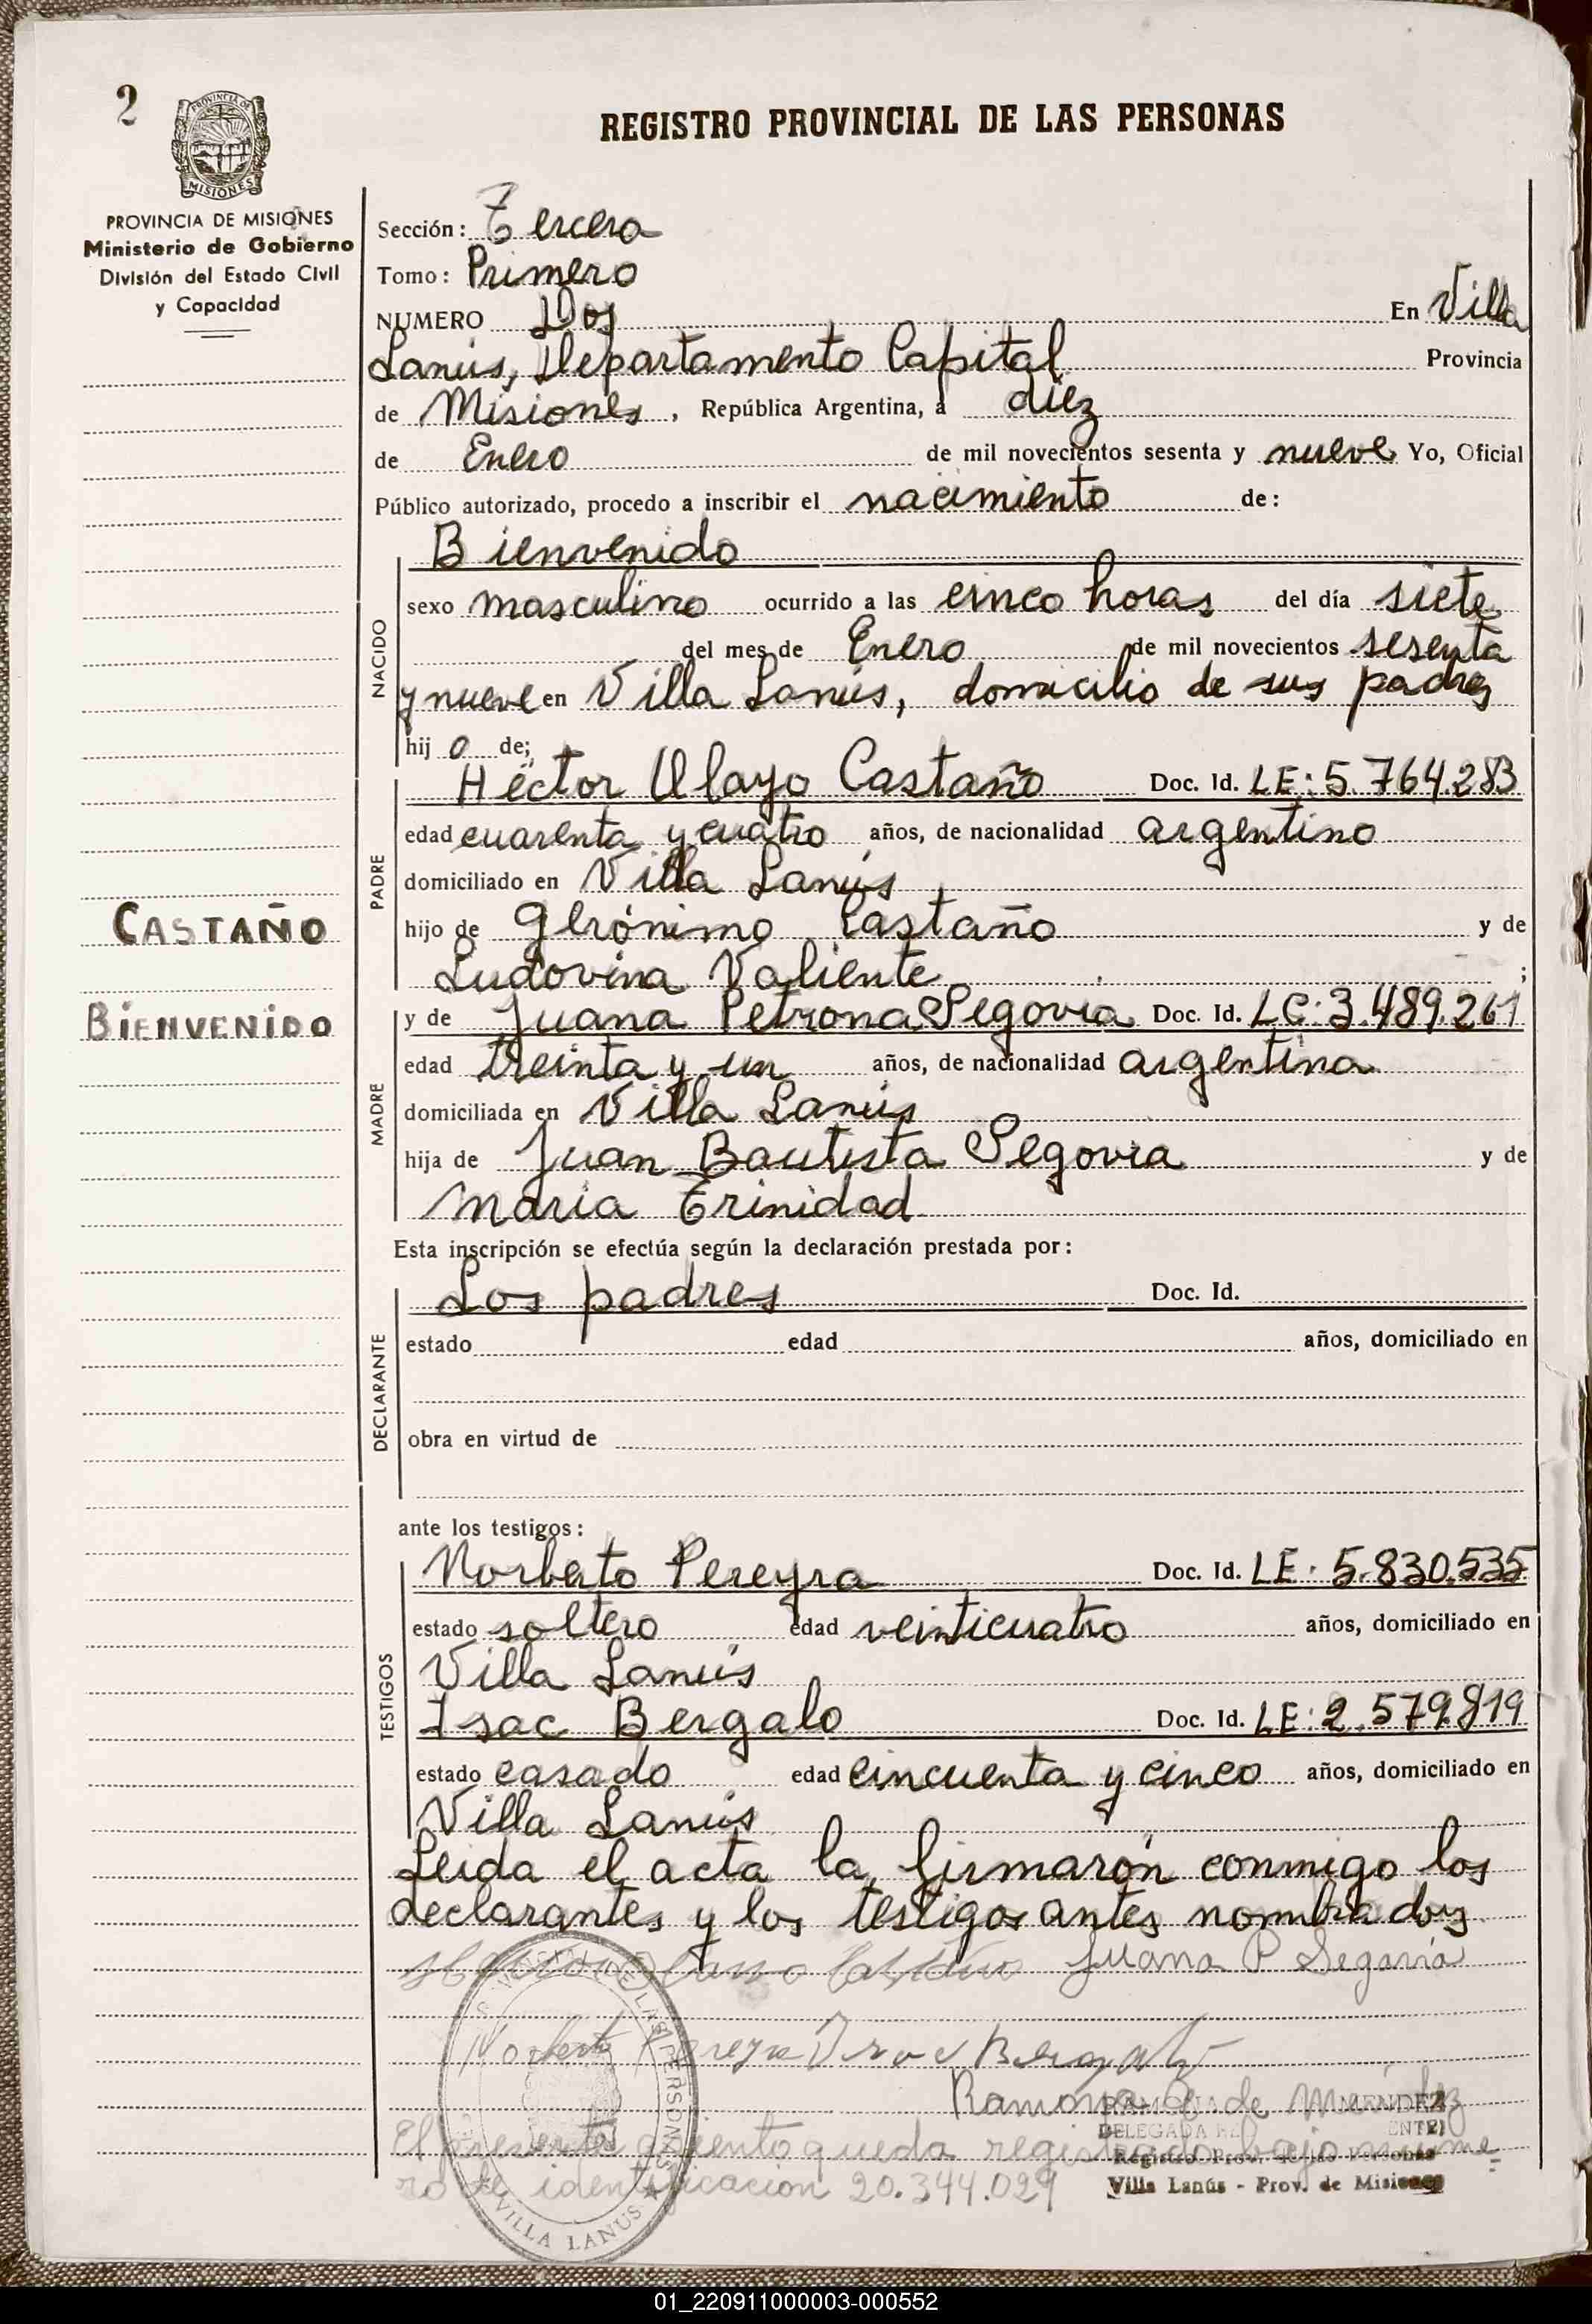 2
PROVINCIA DE
MISIONES
REGISTRO PROVINCIAL DE LAS PERSONAS
PROVINCIA DE MISIONES
Ministerio de Gobierno
División del Estado Civil
y Capacidad
Sección: Tercera
Tomo: Primero
NUMERO Dos En Villa
Lanús, Departamento Capital Provincia
de Misiones, República Argentina, a diez
de Enero de mil novecientos sesenta y nueve Yo, Oficial
Público autorizado, procedo a inscribir el nacimiento de:
NACIDO
Bienvenido
sexo masculino ocurrido a las cinco horas del día siete
del mes de Enero de mil novecientos sesenta
y nueve en Villa Lanús, domicilio de sus padres
hijo de;
PADRE
Héctor Olayo Castaño Doc. Id. LE: 5.764.283
edad cuarenta y cuatro años, de nacionalidad argentino
domiciliado en Villa Lanús,
CASTAÑO
hijo de Gerónimo Castaño y de
Ludovina Valiente ;
BIENVENIDO
MADRE
y de Juana Petrona Segovia Doc. Id. LC: 3.489.261
edad treinta y un años, de nacionalidad argentina
domiciliada en Villa Lanús
hija de Juan Bautista Segovia y de
Maria Trinidad
Esta inscripción se efectúa según la declaración prestada por:
DECLARANTE
Los padres Doc. Id.
estado edad años, domiciliado en
obra en virtud de
ante los testigos:
TESTIGOS
Norberto Pereyra Doc. Id. LE: 5.830.535
estado soltero edad veinticuatro años, domiciliado en
Villa Lanús
Isac Bergalo Doc. Id. LE: 2.579.819
estado casado edad cincuenta y cinco años, domiciliado en
Villa Lanús
Leida el acta la firmarón conmigo los
declarantes y los testigos antes nombrados
Castaño Juana P Segovia
Norberto Pereyra Isac Bergalo
Ramona de Mendez
MENDEZ
DELEGADA
El presente queda registrado bajo nume
Registro Prov. de las Personas
ro de identificacion 20.344.029
Villa Lanús - Prov. de Misiones
DE LAS PERSONAS
VILLA LANUS
01_220911000003-000552